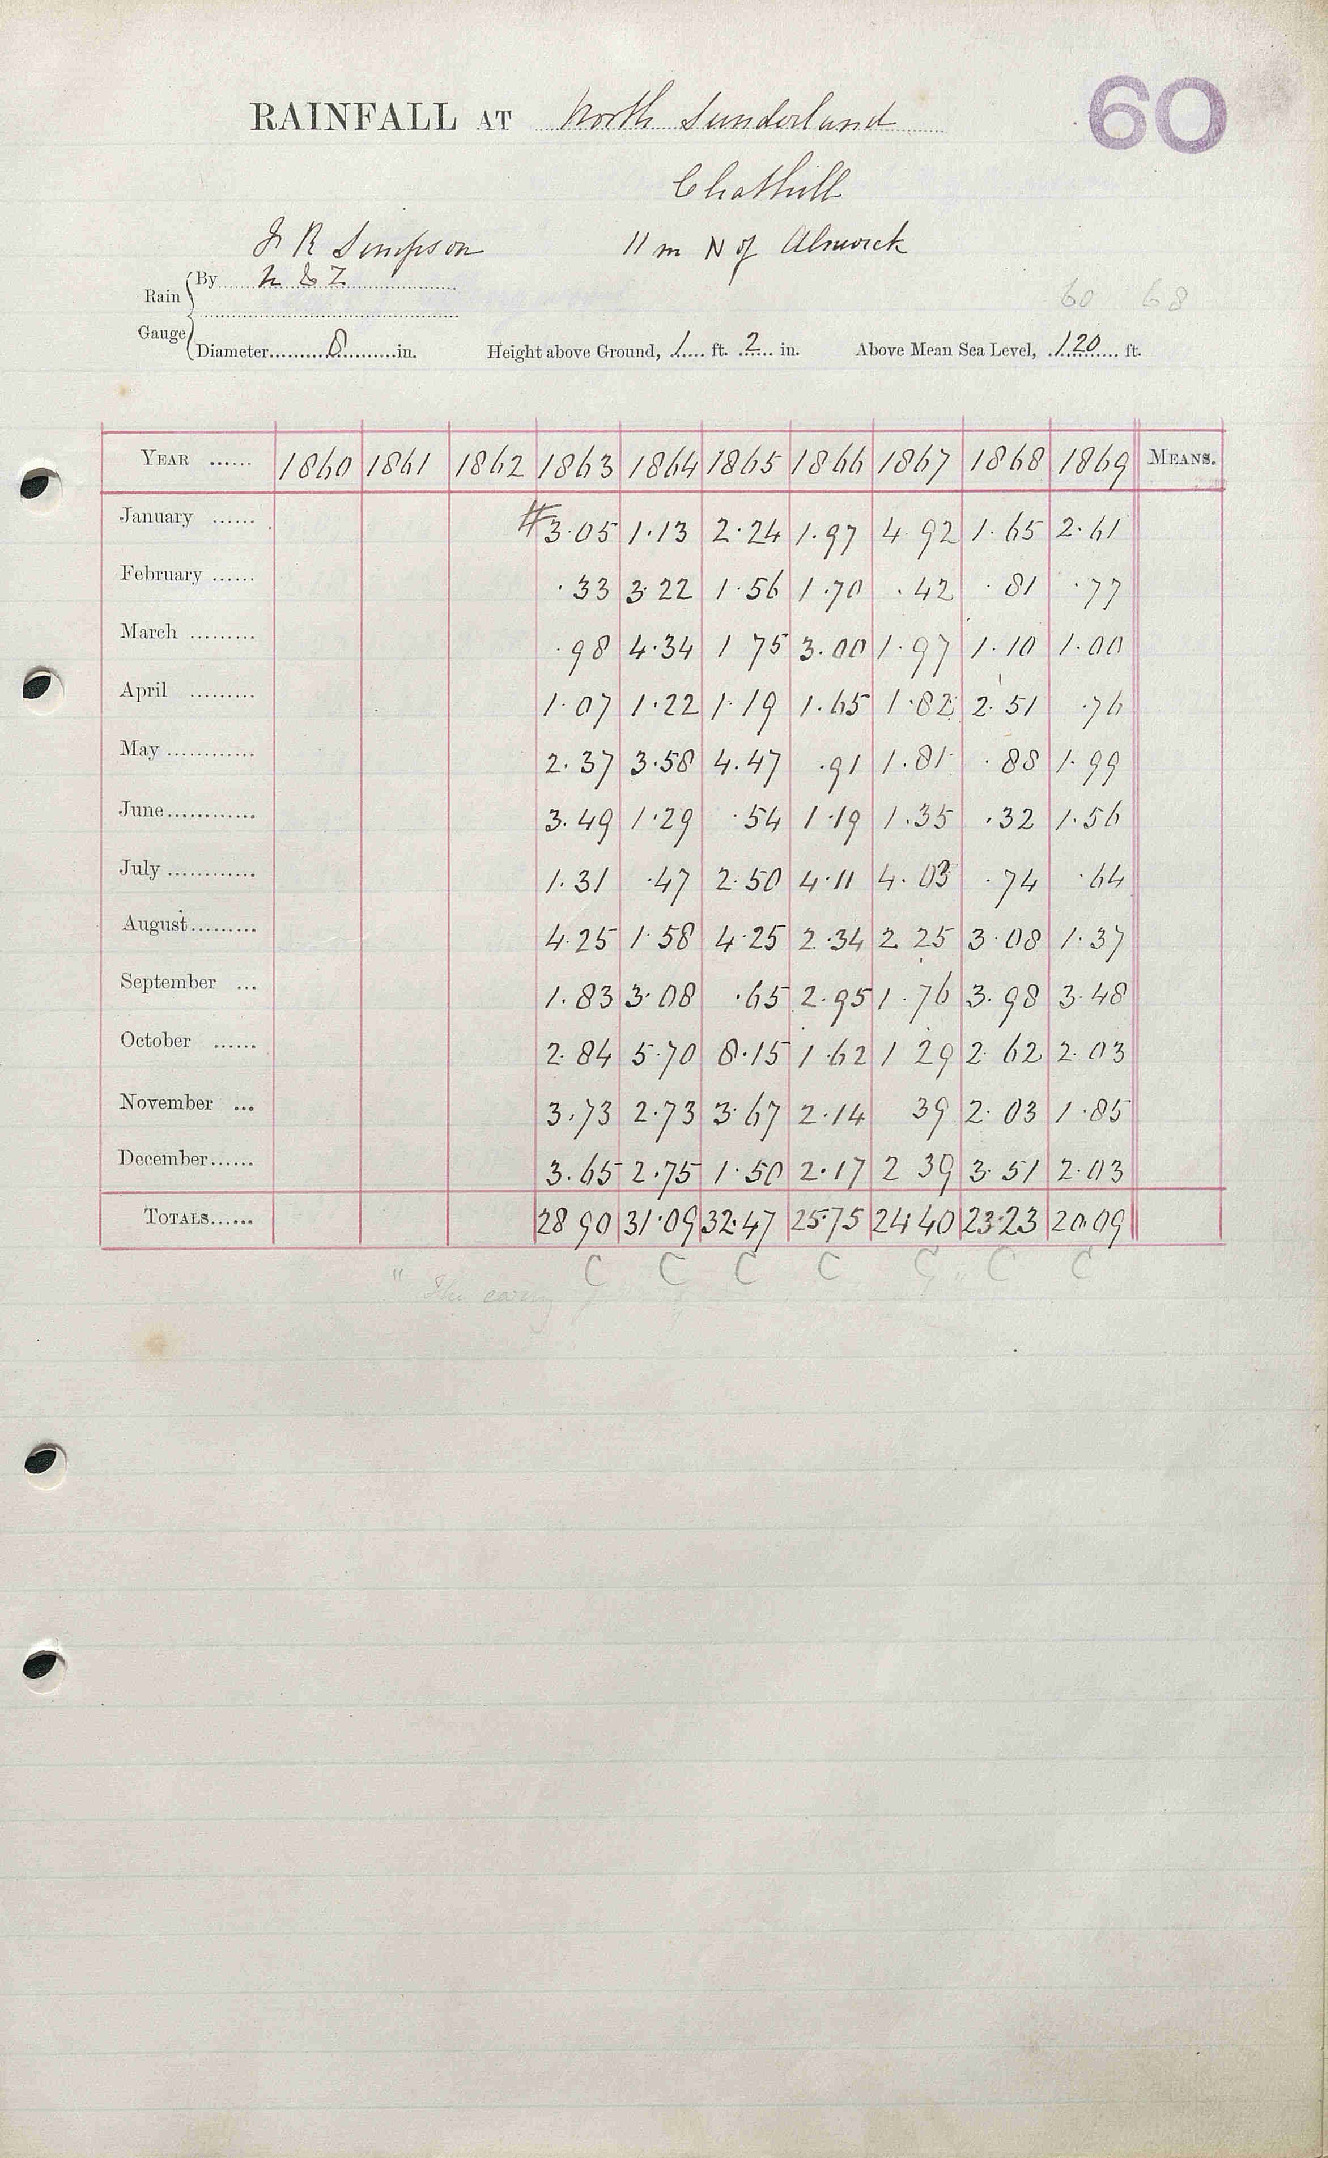 RAINFALL AT North Sunderland
60
Chathill
J R Simpson 11 m N of Alnwick
Rain Gauge
By N & Z
60 68
Diameter 8 in. Height above Ground, 1 ft. 2 in. Above Mean Sea Level, 120 ft.
YEAR 1860 1861 1862 1863 1864 1865 1866 1867 1868 1869 MEANS.
January #3.05 1.13 2.24 1.97 4 92 1.65 2.61
February .33 3 22 1.56 1.70 .42 .81 .77
March .98 4.34 1 75 3.00 1.97 1.10 1.00
April 1.07 1.22 1.19 1.65 1.82 2.51 .76
May 2.37 3.58 4.47 .91 1.81 .88 1.99
June 3.49 1.29 .54 1.19 1.35 .32 1.56
July 1.31 .47 2.50 4.11 4.03 .74 .64
August 4.25 1.58 4.25 2.34 2 25 3.08 1.37
September 1.83 3.08 .65 2.95 1.76 3.98 3.48
October 2.84 5.70 8.15 1.62 1 29 2.62 2.03
November 3.73 2.73 3.67 2.14 39 2.03 1.85
December 3.65 2.75 1.50 2.17 2 39 3.51 2.03
TOTALS 28 90 31.09 32.47 25.75 24.40 23.23 20.09
C C C C C C C